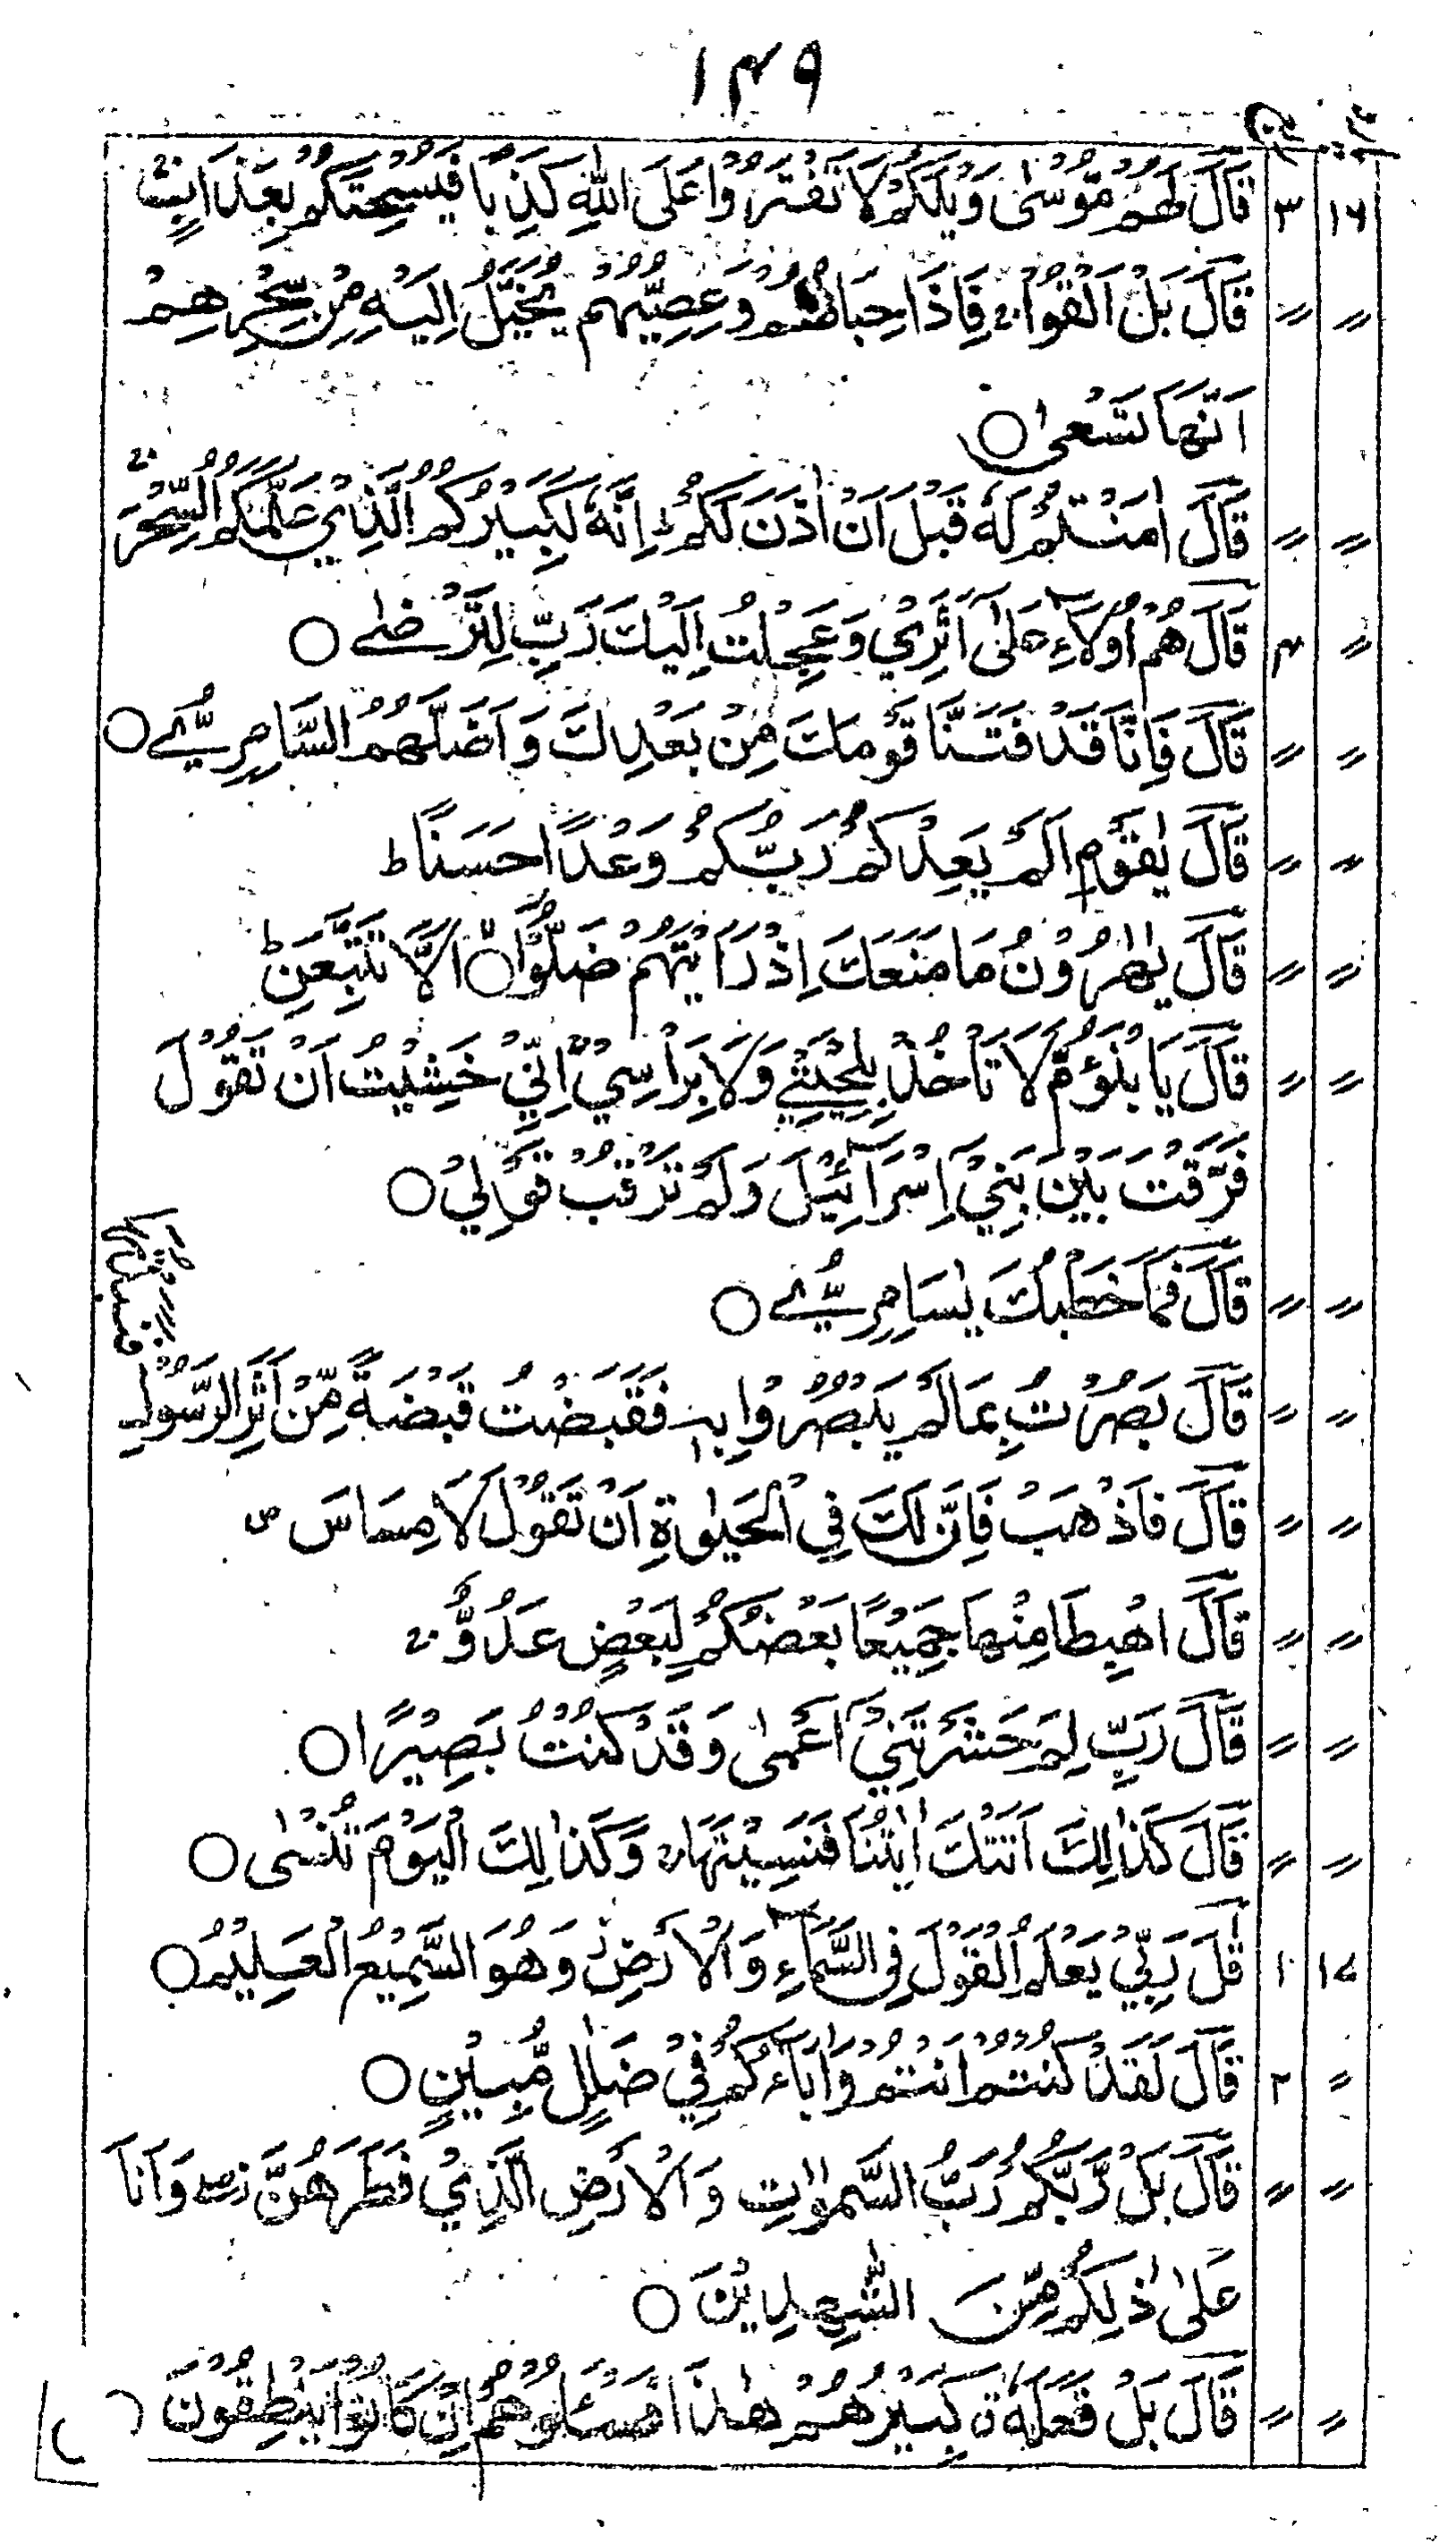 ۱۴۹
۱۶ ۳ قَالَ لَهُمْ مُّوْسٰى وَيْلَكُمْ لَا تَفْتَرُوْا عَلَى اللّٰهِ كَذِبًا فَيُسْحِتَكُمْ بِعَذَابٍ ۚ
〃 〃 قَالَ بَلْ اَلْقُوْا ۚ فَاِذَا حِبَالُهُمْ وَعِصِيُّهُمْ يُخَيَّلُ اِلَيْهِ مِنْ سِحْرِهِمْ
اَنَّهَا تَسْعٰى ○
〃 〃 قَالَ اٰمَنْتُمْ لَهٗ قَبْلَ اَنْ اٰذَنَ لَكُمْ ؕ اِنَّهٗ لَكَبِيْرُكُمُ الَّذِيْ عَلَّمَكُمُ السِّحْرَ ۚ
〃 ۴ قَالَ هُمْ اُولَآءِ عَلٰٓى اَثَرِيْ وَعَجِلْتُ اِلَيْكَ رَبِّ لِتَرْضٰى ○
〃 〃 قَالَ فَاِنَّا قَدْ فَتَنَّا قَوْمَكَ مِنْ بَعْدِكَ وَاَضَلَّهُمُ السَّامِرِيُّ ○
〃 〃 قَالَ يٰقَوْمِ اَلَمْ يَعِدْكُمْ رَبُّكُمْ وَعْدًا حَسَنًا ؕ
〃 〃 قَالَ يٰهٰرُوْنُ مَا مَنَعَكَ اِذْ رَاَيْتَهُمْ ضَلُّوْٓا ○ اَلَّا تَتَّبِعَنِ ؕ
〃 〃 قَالَ يَا بْنَؤُمَّ لَا تَاْخُذْ بِلِحْيَتِيْ وَلَا بِرَاْسِيْ ۚ اِنِّيْ خَشِيْتُ اَنْ تَقُوْلَ
فَرَّقْتَ بَيْنَ بَنِيْٓ اِسْرَآئِيْلَ وَلَمْ تَرْقُبْ قَوْلِيْ ○
〃 〃 قَالَ فَمَا خَطْبُكَ يٰسَامِرِيُّ ○
〃 〃 قَالَ بَصُرْتُ بِمَا لَمْ يَبْصُرُوْا بِهٖ فَقَبَضْتُ قَبْضَةً مِّنْ اَثَرِ الرَّسُوْلِ
〃 〃 قَالَ فَاذْهَبْ فَاِنَّ لَكَ فِي الْحَيٰوةِ اَنْ تَقُوْلَ لَا مِسَاسَ ص
〃 〃 قَالَ اهْبِطَا مِنْهَا جَمِيْعًا بَعْضُكُمْ لِبَعْضٍ عَدُوٌّ ۚ
〃 〃 قَالَ رَبِّ لِمَ حَشَرْتَنِيْٓ اَعْمٰى وَقَدْ كُنْتُ بَصِيْرًا ○
〃 〃 قَالَ كَذٰلِكَ اَتَتْكَ اٰيٰتُنَا فَنَسِيْتَهَا ۚ وَكَذٰلِكَ الْيَوْمَ تُنْسٰى ○
۱۷ ۱ قٰلَ رَبِّيْ يَعْلَمُ الْقَوْلَ فِي السَّمَآءِ وَالْاَرْضِ ز وَهُوَ السَّمِيْعُ الْعَلِيْمُ ○
〃 ۲ قَالَ لَقَدْ كُنْتُمْ اَنْتُمْ وَاٰبَآءُكُمْ فِيْ ضَلٰلٍ مُّبِيْنٍ ○
〃 〃 قَالَ بَلْ رَّبُّكُمْ رَبُّ السَّمٰوٰتِ وَالْاَرْضِ الَّذِيْ فَطَرَهُنَّ ز وَاَنَا
عَلٰى ذٰلِكُمْ مِّنَ الشّٰهِدِيْنَ ○
〃 〃 قَالَ بَلْ فَعَلَهٗ ق كَبِيْرُهُمْ هٰذَا فَسْـَٔلُوْهُمْ اِنْ كَانُوْا يَنْطِقُوْنَ